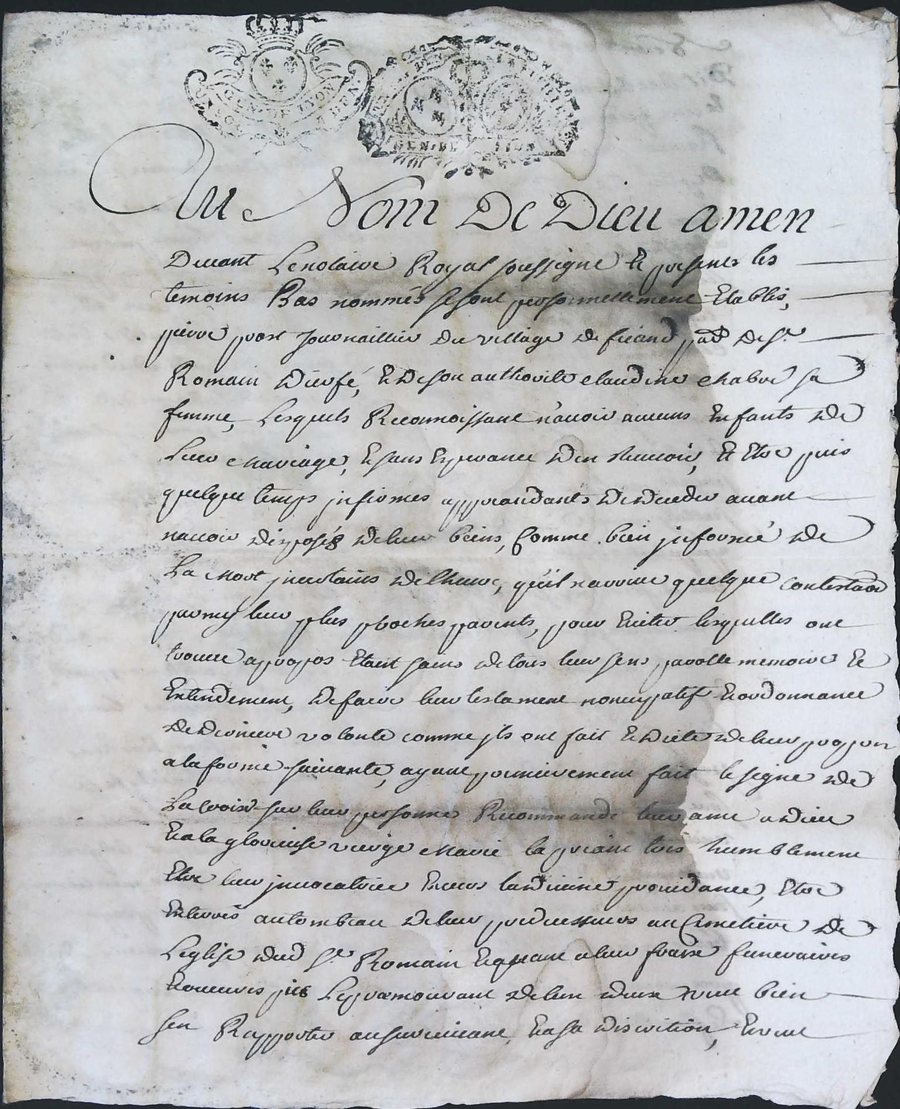 GEN. DE LYON
GEN. DE LYON
Au Nom De Dieu amen
Devant Lenotaire Royal soussigné Et presents les
temoins Bas nommés se sont personnellement Etablis,
pierre journaillier du village de par. de St.
Romain Durfé, Et de son authorité claudine chabre sa
femme, Lesquels Reconnoissant n'avoir aucuns Enfants de
Leur mariage, Et sans Esperance d'en avoir, Et Etre puis
quelque temps infirmes apprendants De Deceder avant
navoir disposés de leur biens, Comme bien informé de
La mort incertaine de lheure, qu'il narrive quelque contestaon
parmy leur plus proches parents, pour Eviter lesquelles ont
trouvé apropos Etant sains de tous leur sens parolle memoire Et
Entendement, de faire leur testament noncupatif Et ordonnance
De Derniere volonté comme ils ont fait Et Dicté de leur propre
a la forme suivante, ayant premierement fait le signe de
La croix sur leur personne Recommandé leur ame a Dieu
Et a la glorieuse vierge marie la priant tres humblement
Etre leur invocatrice Envers la divine providance, Etre
Enterrés au tombeau de leur predecesseurs au Cimetiere de
L'eglise dud. St. Romain Et quant a leur fraix funeraires
Et oeuvres pies Le premourant de leur deux veut bien
sen Rapporter au survivant, Et a sa discretion, Et veut